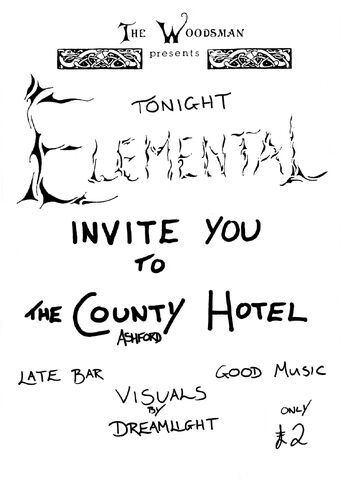 THE WOODSMAN
presents
TONIGHT
ELEMENTAL
INVITE YOU
TO
THE COUNTY HOTEL
ASHFORD
LATE BAR
GOOD MUSIC
VISUALS
BY
DREAMLIGHT
ONLY
£2